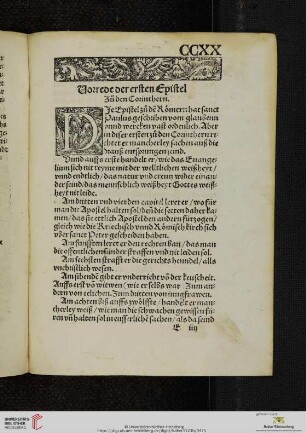 CCXX
Vorrede der ersten Epistel
Zu den Corinthern.
Die Epistel zů dē Römern hat sanct
Paulus geschriben vom glauben
vnnd wercken vast ordenlich. Aber
in diser ersten zů den Corinthern er-
zelt er mancherley sachen auß die
drauß entsprungen seind.
Vnnd auffs erst handelt er / wie das Euange-
lium sich nit reyme mit der weltlichen weißheit /
vnnd endtlich / das natur vnd
der sund / das menschlich weißheyt Gottes weiß-
heyt nit leide.
Am dritten vnd vierden capitel leret er / wo für
man die Apostel halten sol / das die secten daher
men / das sie ettlich Apostel den andern fürzogen /
gleich wie die Kriechisch vnnd Römisch kirch sich
über sanct Peter gescheiden haben.
Am fünfften leret er den rechten Ban / das man
die offentlichen sünder straffen vnd nit leiden sol.
Am sechsten strafft er die gerichts hendel / als
vnchristlich wesen.
Am sibende gibt er vnderricht võ der keuscheit.
Auffs erst võ witwen / wie er selbs war. Zum an-
dern von eelichen. Zum dritten von iungfrawen.
Am achten biß auffs zwölffte / handelt er man-
cherley weiß / wie man die schwachen gewissen fü-
ren vñ halten sol in eusserlichē sachen / als da seind
E iiij
UNIVERSITÄTS-
BIBLIOTHEK
HEIDELBERG
© Universitätsbibliothek Heidelberg